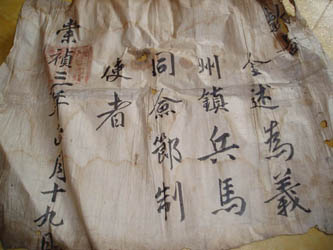 全述為義
州鎮兵馬
同僉節制
使者
崇禎三年月十九日